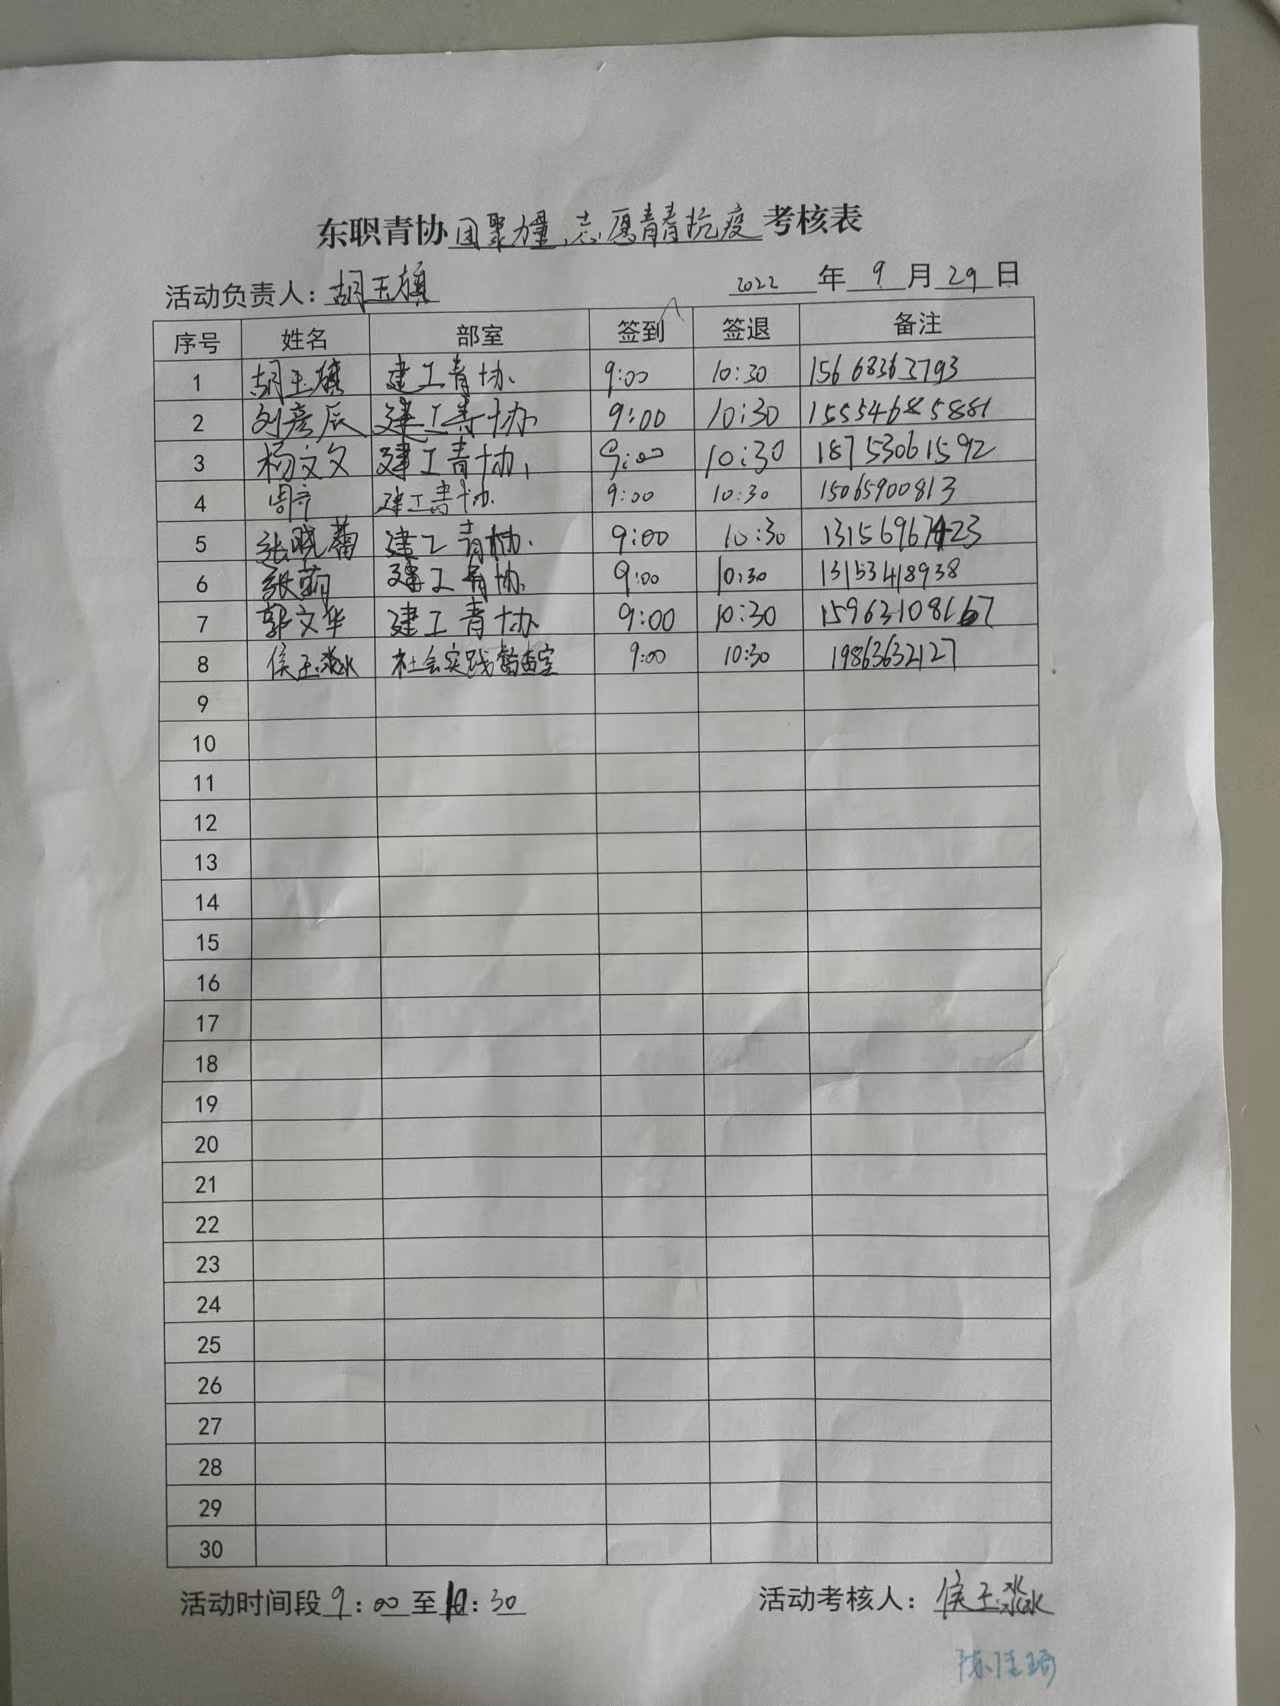 东职青协团聚力量,志愿青春抗疫考核表
活动负责人:胡玉镇 2022年9月29日
序号 姓名 部室 签到 签退 备注
1 胡玉镇 建工青协. 9:00 10:30 15668363793
2 刘彦辰 建工青协 9:00 10:30 15554685881
3 杨文文 建工青协, 9:00 10:30 18753061592
4 建工青协. 9:00 10:30 15065900813
5 张晓蕾 建工青协. 9:00 10:30
6 张萌 建工青协 9:00 10:30 13153418938
7 郭文华 建工青协 9:00 10:30
8 侯玉淼 社会实践督查室 9:00 10:30 19863632127
9
10
11
12
13
14
15
16
17
18
19
20
21
22
23
24
25
26
27
28
29
30
活动时间段9:00至10:30 活动考核人:侯玉淼